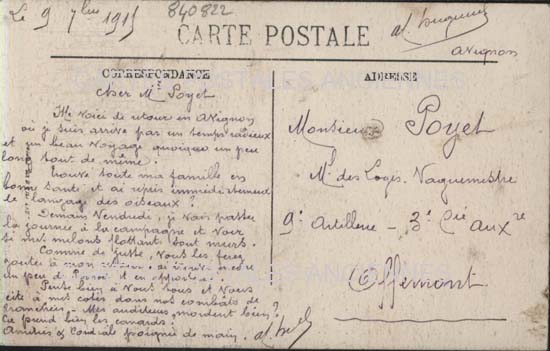 Le 9 7bre 1915
840822
CARTE POSTALE
Avignon
CORRESPONDANCE
ADRESSE
Cher Mr Poyet
Me voici de retour en Avignon
où je suis arrivé par un temps radieux
et un beau voyage quoique un peu
long tout de même.
Trouvé toute ma famille en
bonne santé et ai repris immédiatement
le langage des oiseaux?
Demain Vendredi, je vais passer
la journée à la campagne et voir
si mes melons sont murs.
Comme de juste, vous les ferez
goûter à mon
un peu de et en apporterai.
Pense bien à Vous tous et Vous
à mes côtés dans nos combats de
tranchées - Mes auditeurs mordent bien?
Ce prend bien les canards.
Amitiés & Cordiale poignée de main.
Monsieur Poyet
Ml des Loges-Vaguemestre
9e Artillerie - 3e Cie auxre
Offemont